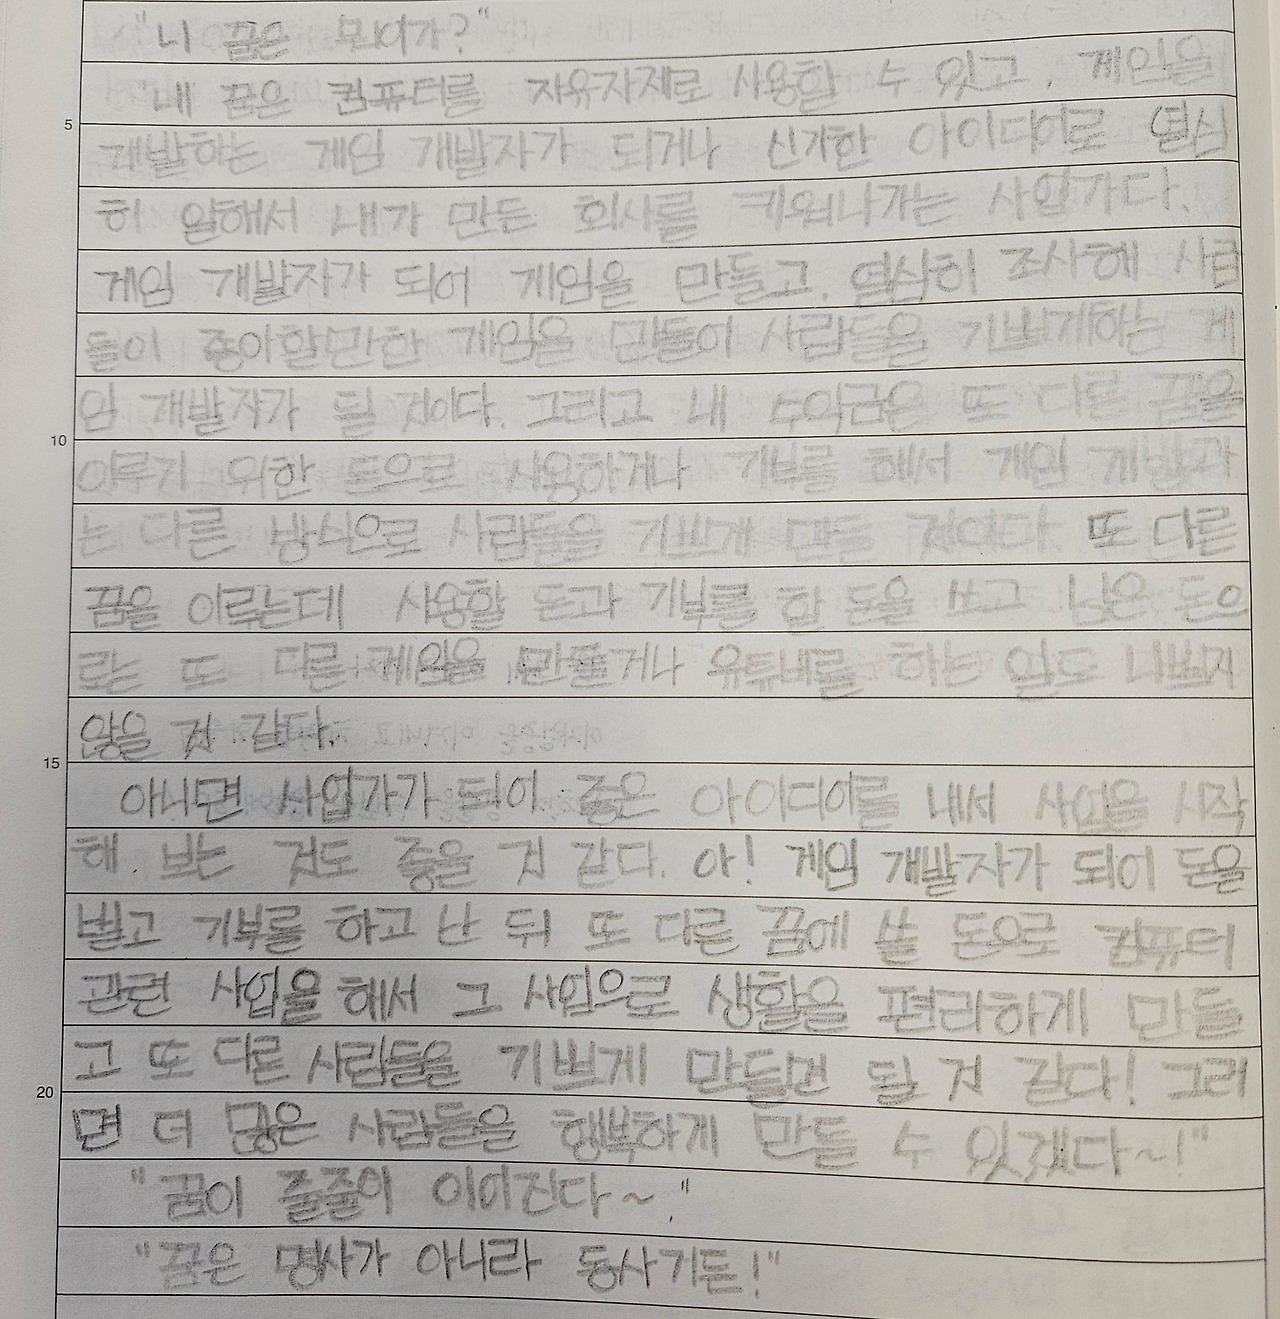 "니 꿈은 뭐야?"
"내 꿈은 컴퓨터를 자유자재로 사용할 수 있고, 게임을
개발하는 게임 개발자가 되거나 신기한 아이디어로 열심
히 일해서 내가 만든 회사를 키워나가는 사업가다.
게임 개발자가 되어 게임을 만들고, 열심히 조사해 사람
들이 좋아할만한 게임을 만들어 사람들을 기쁘게하는 게
임 개발자가 될 것이다. 그리고 내 수익금은 또 다른 꿈을
이루기 위한 돈으로 사용하거나 기부를 해서 게임 개발과
는 다른 방식으로 사람들을 기쁘게 만들 것이다. 또 다른
꿈을 이루는데 사용할 돈과 기부를 할 돈을 쓰고 남은 돈으
로는 또 다른 게임을 만들거나 유튜버를 하는 일도 나쁘지
않을 것 같다.
아니면 사업가가 되어 좋은 아이디어를 내서 사업을 시작
해 보는 것도 좋을 것 같다. 아! 게임 개발자가 되어 돈을
벌고 기부를 하고 난 뒤 또 다른 꿈에 쓸 돈으로 컴퓨터
관련 사업을 해서 그 사업으로 생활을 편리하게 만들
고 또 다른 사람들을 기쁘게 만들면 될 것 같다! 그러
면 더 많은 사람들을 행복하게 만들 수 있겠다~!"
"꿈이 줄줄이 이어진다~"
"꿈은 명사가 아니라 동사거든!"